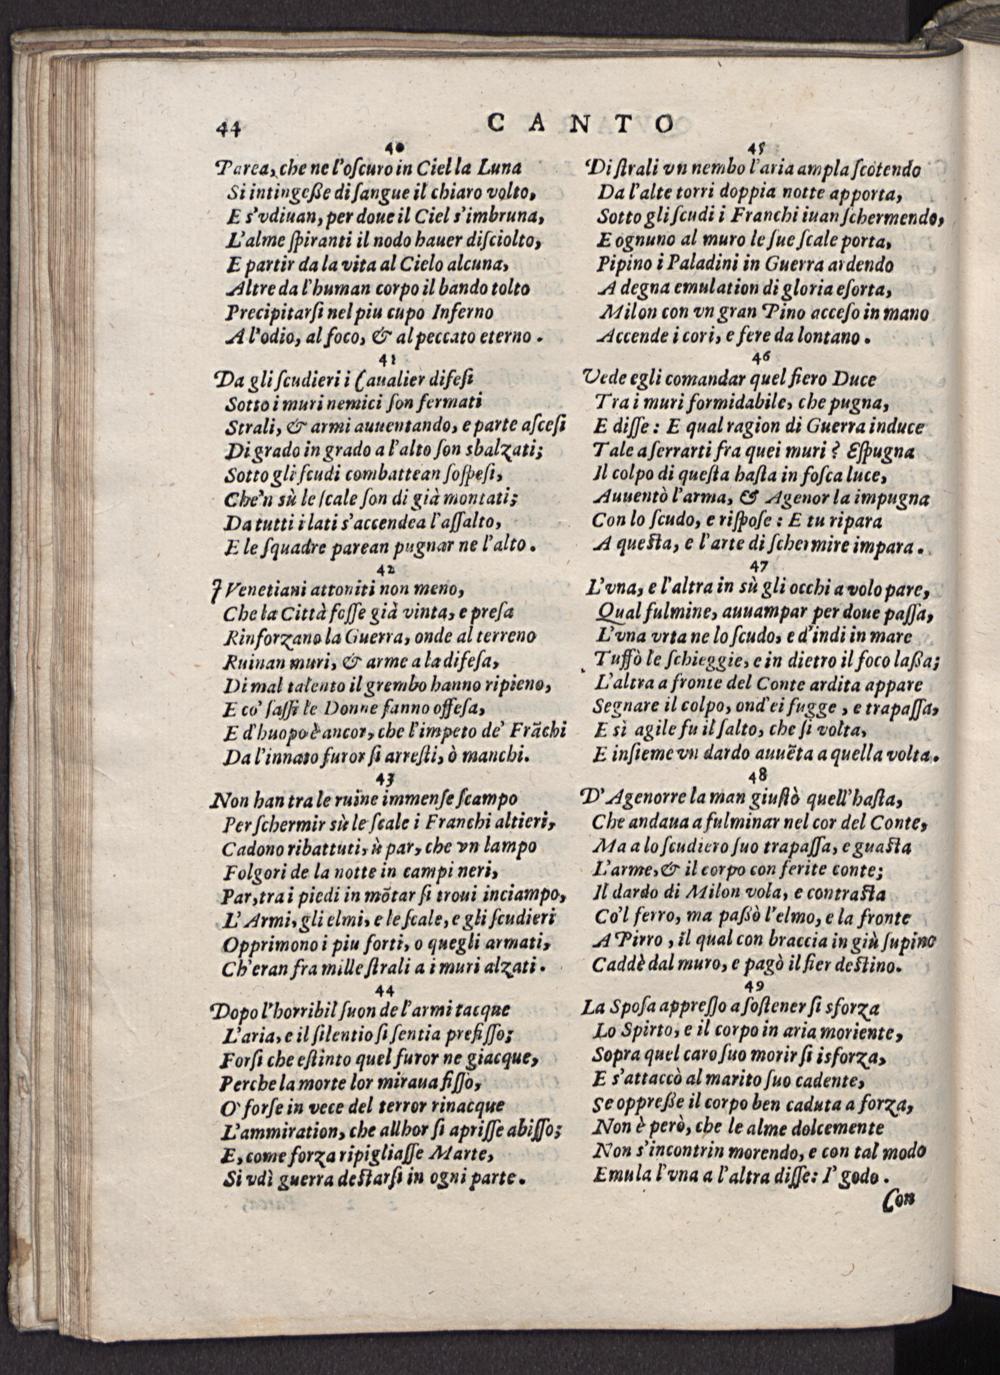 44
CANTO
40
Parea, che ne l'oſcuro in Ciel la Luna
Si intingeße di ſangue il chiaro volto,
E s'vdiuan, per doue il Ciel s'imbruna,
L'alme ſpiranti il nodo hauer diſciolto,
E partir da la vita al Cielo alcuna,
Altre da l'human corpo il bando tolto
Precipitarſi nel piu cupo Inferno
A l'odio, al foco, & al peccato eterno.
41
Da gli ſcudieri i Caualier difeſi
Sotto i muri nemici ſon fermati
Strali, & armi auuentando, e parte aſceſi
Di grado in grado a l'alto ſon sbalzati;
Sotto gli ſcudi combattean ſoſpeſi,
Che'n sù le ſcale ſon di già montati;
Da tutti i lati s'accendea l'aſſalto,
E le ſquadre parean pugnar ne l'alto.
42
I Venetiani attoniti non meno,
Che la Città foſſe già vinta, e preſa
Rinforzano la Guerra, onde al terreno
Ruinan muri, & arme a la difeſa,
Di mal talento il grembo hanno ripieno,
E co' ſaſſi le Donne fanno offeſa,
E d'huopo è ancor, che l'impeto de' Frãchi
Da l'innato furor ſi arreſti, ò manchi.
43
Non han tra le ruine immenſe ſcampo
Per ſchermir sù le ſcale i Franchi altieri,
Cadono ribattuti, e par, che vn lampo
Folgori de la notte in campi neri,
Par, tra i piedi in mõtar ſi troui inciampo,
L'Armi, gli elmi, e le ſcale, e gli ſcudieri
Opprimono i piu forti, o quegli armati,
Ch'eran fra mille ſtrali a i muri alzati.
44
Dopo l'horribil ſuon de l'armi tacque
L'aria, e il ſilentio ſi ſentia prefiſſo;
Forſi che eſtinto quel furor ne giacque,
Perche la morte lor miraua fiſſo,
O' forſe in vece del terror rinacque
L'ammiration, che allhor ſi apriſſe abiſſo;
E, come forza ripigliaſſe Marte,
Si vdì guerra deſtarſi in ogni parte.
45
Di ſtrali vn nembo l'aria ampla ſcotendo
Da l'alte torri doppia notte apporta,
Sotto gli ſcudi i Franchi iuan ſchermendo,
E ognuno al muro le ſue ſcale porta,
Pipino i Paladini in Guerra ardendo
A degna emulation di gloria eſorta,
Milon con vn gran Pino acceſo in mano
Accende i cori, e fere da lontano.
46
Vede egli comandar quel fiero Duce
Tra i muri formidabile, che pugna,
E diſſe: E qual ragion di Guerra induce
Tale a ſerrarti fra quei muri? Eſpugna
Il colpo di queſta haſta in foſca luce,
Auuentò l'arma, & Agenor la impugna
Con lo ſcudo, e riſpoſe: E tu ripara
A queſta, e l'arte di ſchermire impara.
47
L'vna, e l'altra in sù gli occhi a volo pare,
Qual fulmine, auuampar per doue paſſa,
L'vna vrta ne lo ſcudo, e d'indi in mare
Tuffò le ſchieggie, e in dietro il foco laßa;
L'altra a fronte del Conte ardita appare
Segnare il colpo, ond'ei fugge, e trapaſſa,
E sì agile fu il ſalto, che ſi volta,
E inſieme vn dardo auuẽta a quella volta.
48
D'Agenorre la man giuſtò quell'haſta,
Che andaua a fulminar nel cor del Conte,
Ma a lo ſcudiero ſuo trapaſſa, e guaſta
L'arme, & il corpo con ferite conte;
Il dardo di Milon vola, e contraſta
Co'l ferro, ma paßò l'elmo, e la fronte
A Pirro, il qual con braccia in giù ſupino
Caddè dal muro, e pagò il fier deſtino.
49
La Spoſa appreſſo a ſoſtener ſi sforza
Lo Spirto, e il corpo in aria moriente,
Sopra quel caro ſuo morir ſi isforza,
E s'attaccò al marito ſuo cadente,
Se oppreße il corpo ben caduta a forza,
Non è però, che le alme dolcemente
Non s'incontrin morendo, e con tal modo
Emula l'vna a l'altra diſſe: I' godo.
Con